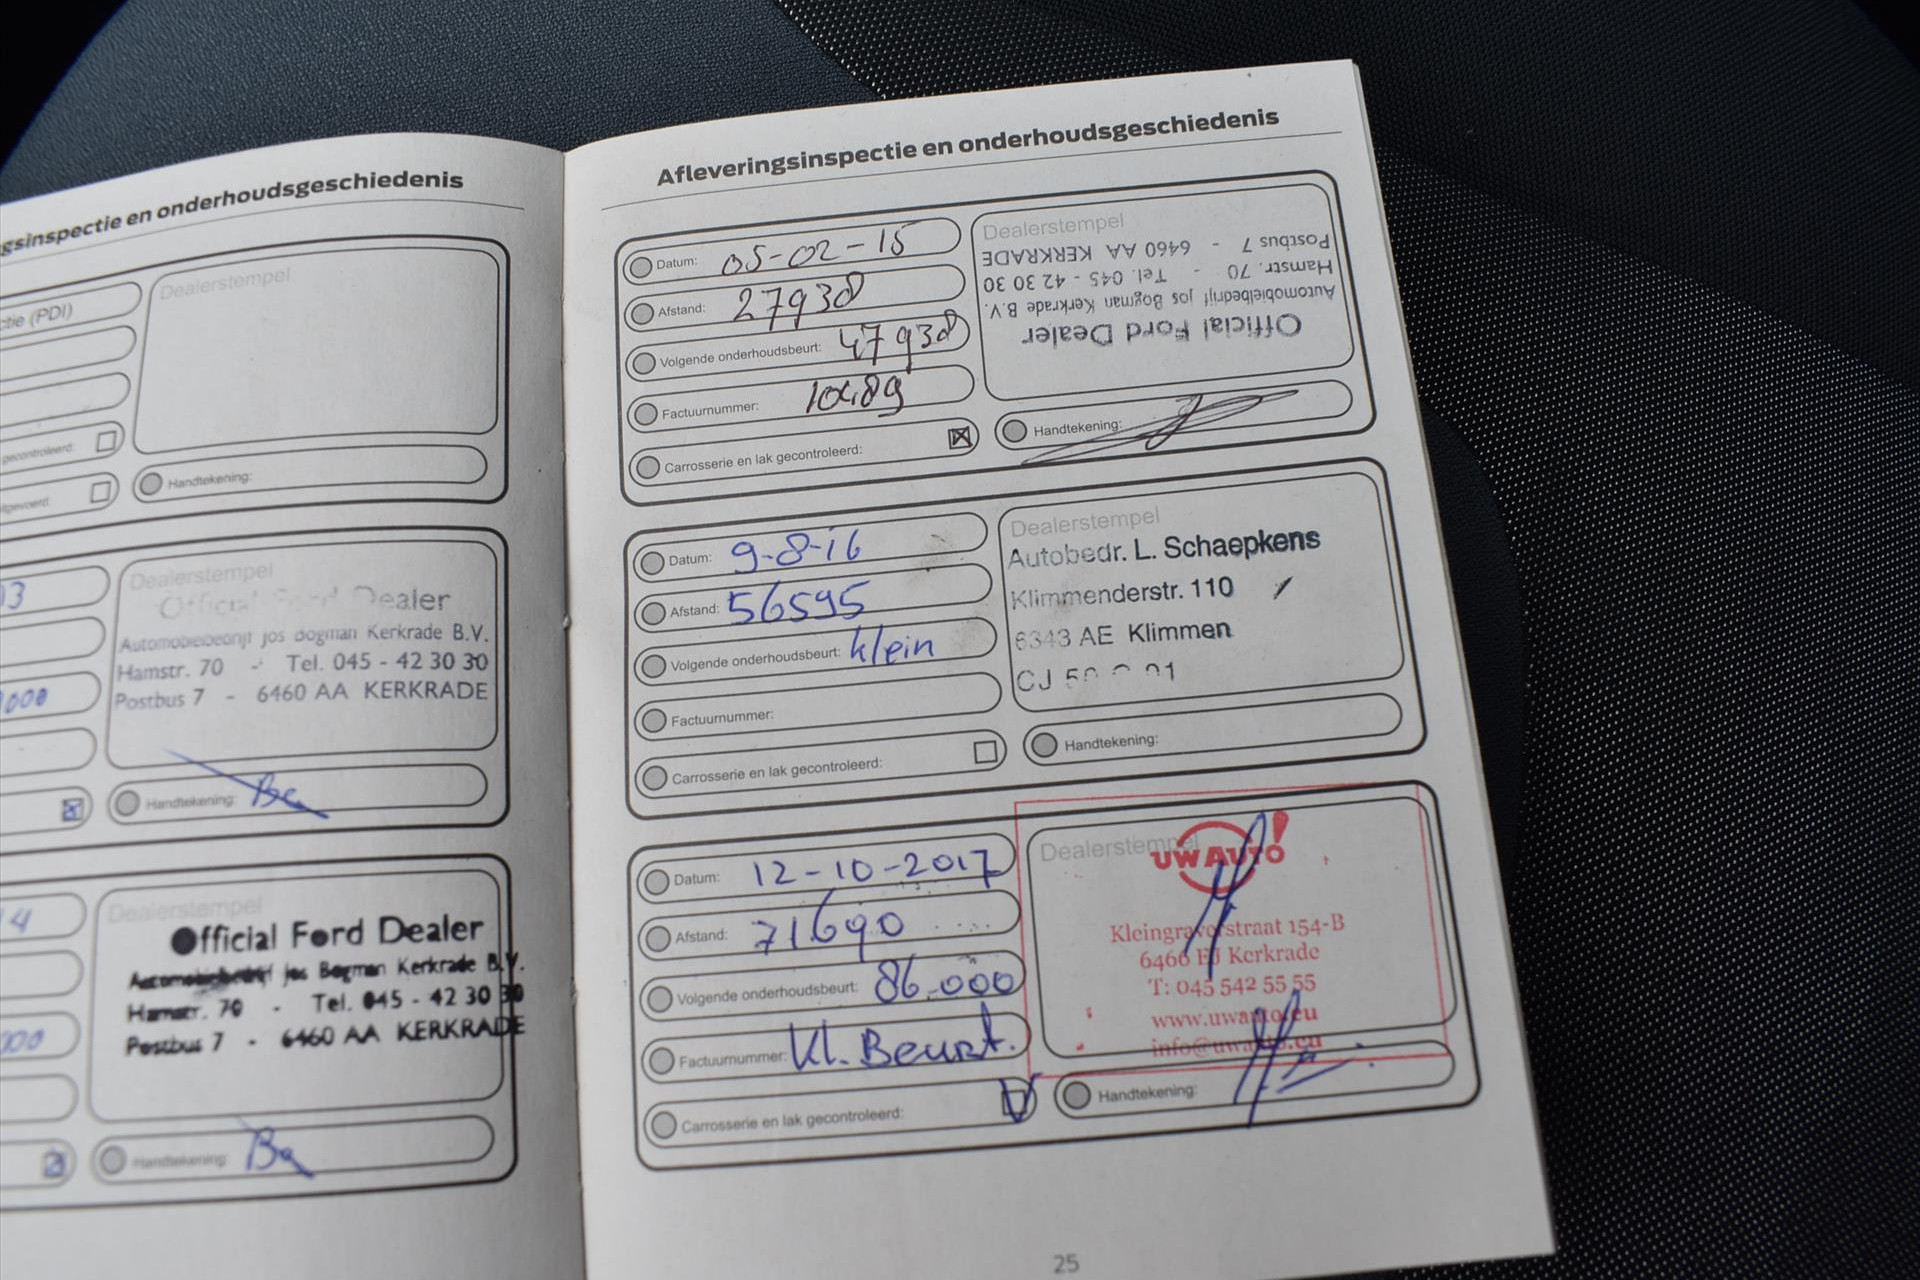 gsinspectie en onderhoudsgeschiedenis
ctie (PDI)
Dealerstempel
gecontroleerd:
Handtekening:
03
Dealerstempel
Official Ford Dealer
Automobielbedrijf Jos Bogman Kerkrade B.V.
Hamstr. 70 - Tel. 045 - 42 30 30
Postbus 7 - 6460 AA KERKRADE
Handtekening:
4
Dealerstempel
Official Ford Dealer
Automobielbedrijf Jos Bogman Kerkrade B.V.
Hamstr. 70 - Tel. 045 - 42 30 30
Postbus 7 - 6460 AA KERKRADE
Handtekening:
Afleveringsinspectie en onderhoudsgeschiedenis
Datum: 05-02-15
Afstand: 27938
Volgende onderhoudsbeurt: 47938
Factuurnummer:
Carrosserie en lak gecontroleerd:
Dealerstempel
Official Ford Dealer
Automobielbedrijf Jos Bogman Kerkrade B.V.
Hamstr. 70 - Tel. 045 - 42 30 30
Postbus 7 - 6460 AA KERKRADE
Handtekening:
Datum: 9-8-16
Afstand: 56595
Volgende onderhoudsbeurt: klein
Factuurnummer:
Carrosserie en lak gecontroleerd:
Dealerstempel
Autobedr. L. Schaepkens
Klimmenderstr. 110
6343 AE Klimmen
Handtekening:
Datum: 12-10-2017
Afstand: 71690
Volgende onderhoudsbeurt: 86.000
Factuurnummer: Kl. Beurt.
Carrosserie en lak gecontroleerd:
Dealerstempel
UW AUTO!
Kleingraverstraat 154-B
6466 EJ Kerkrade
T: 045 542 55 55
www.uwauto.eu
info@uwauto.eu
Handtekening:
25